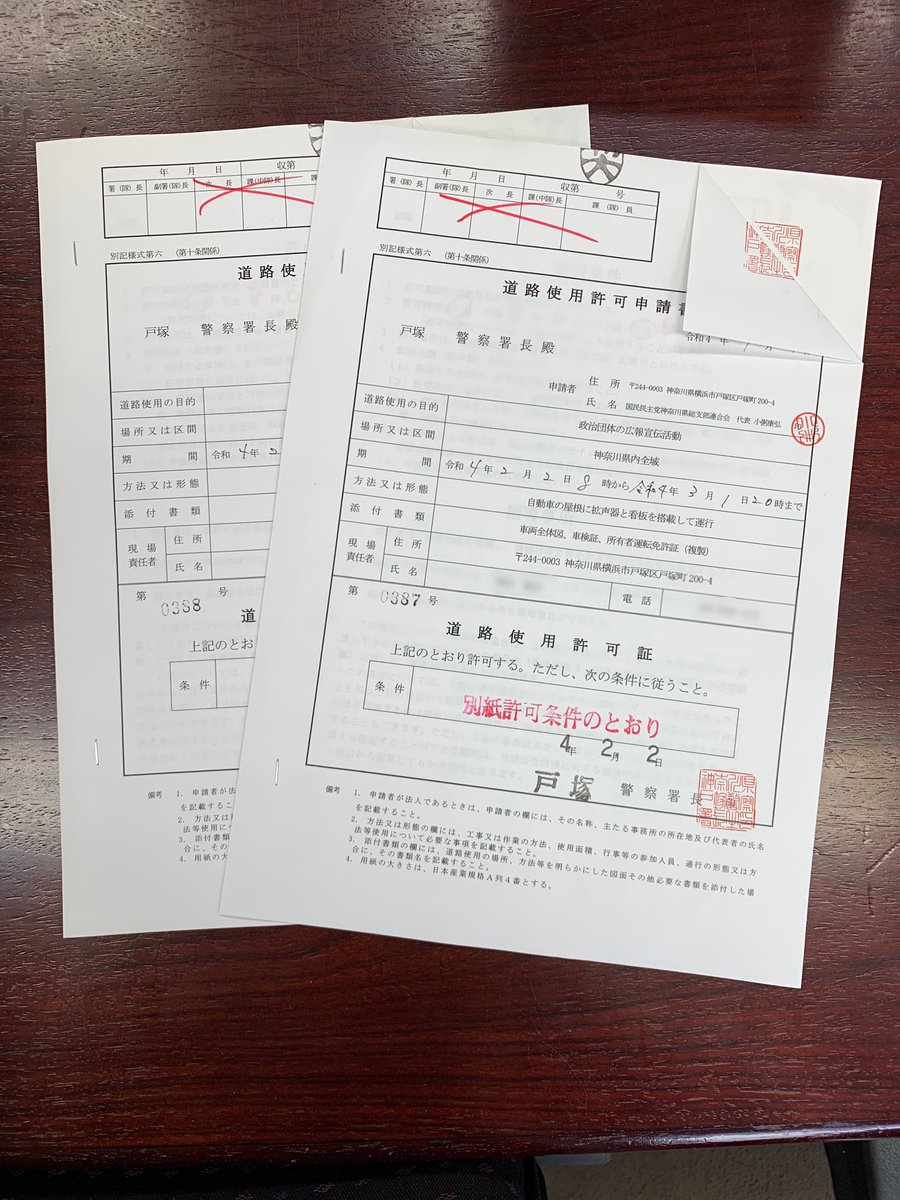 年 月 日 収第
署(隊)長 副署(隊)長 次 長 課(中隊)長
別記様式第六 (第十条関係)
道路使
戸塚 警察署長殿
道路使用の目的
場所又は区間
期 間 令和 4年 2
方法又は形態
添付書類
現場責任者 住 所
氏 名
第 0388 号
道
上記のとお
条件
備考 1. 申請者が法
を記載すること。
2. 方法又
法等使用につ
3. 添付書類
合に、その
4. 用紙の大
年 月 日 収第 号
署(隊)長 副署(隊)長 次 長 課(中隊)長 課(隊)員
別記様式第六 (第十条関係)
道路使用許可申請書
令和4年
戸塚 警察署長殿
申請者 住 所 〒244-0003 神奈川県横浜市戸塚区戸塚町200-4
氏 名 国民民主党神奈川県総支部連合会 代表 小粥康弘
道路使用の目的 政治団体の広報宣伝活動
場所又は区間 神奈川県内全域
期 間 令和4年2月2日8時から令和4年3月1日20時まで
方法又は形態 自動車の屋根に拡声器と看板を搭載して運行
添付書類 車両全体図、車検証、所有者運転免許証(複製)
現場責任者 住 所 〒244-0003 神奈川県横浜市戸塚区戸塚町200-4
氏 名 電話
第 0387 号
道路使用許可証
上記のとおり許可する。ただし、次の条件に従うこと。
条件 別紙許可条件のとおり
4年 2月 2日
戸塚 警察署長
備考 1. 申請者が法人であるときは、申請者の欄には、その名称、主たる事務所の所在地及び代表者の氏名
を記載すること。
2. 方法又は形態の欄には、工事又は作業の方法、使用面積、行事等の参加人員、通行の形態又は方
法等使用について必要な事項を記載すること。
3. 添付書類の欄には、道路使用の場所、方法等を明らかにした図面その他必要な書類を添付した場
合に、その書類名を記載すること。
4. 用紙の大きさは、日本産業規格A列4番とする。